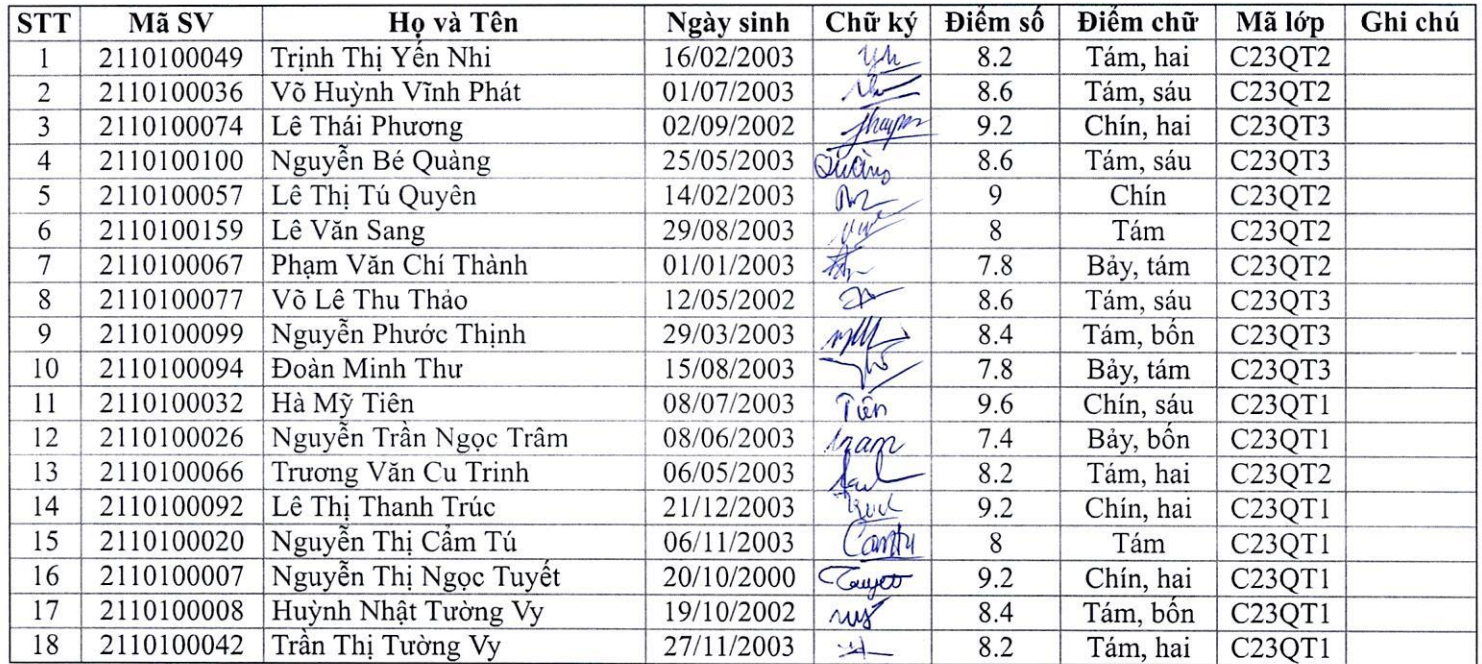 STT Mã SV Họ và Tên Ngày sinh Chữ ký Điểm số Điểm chữ Mã lớp Ghi chú
1 2110100049 Trịnh Thị Yến Nhi 16/02/2003 8.2 Tám, hai C23QT2
2 2110100036 Võ Huỳnh Vĩnh Phát 01/07/2003 8.6 Tám, sáu C23QT2
3 2110100074 Lê Thái Phương 02/09/2002 9.2 Chín, hai C23QT3
4 2110100100 Nguyễn Bé Quàng 25/05/2003 8.6 Tám, sáu C23QT3
5 2110100057 Lê Thị Tú Quyên 14/02/2003 9 Chín C23QT2
6 2110100159 Lê Văn Sang 29/08/2003 8 Tám C23QT2
7 2110100067 Phạm Văn Chí Thành 01/01/2003 7.8 Bảy, tám C23QT2
8 2110100077 Võ Lê Thu Thảo 12/05/2002 8.6 Tám, sáu C23QT3
9 2110100099 Nguyễn Phước Thịnh 29/03/2003 8.4 Tám, bốn C23QT3
10 2110100094 Đoàn Minh Thư 15/08/2003 7.8 Bảy, tám C23QT3
11 2110100032 Hà Mỹ Tiên 08/07/2003 Tiên 9.6 Chín, sáu C23QT1
12 2110100026 Nguyễn Trần Ngọc Trâm 08/06/2003 7.4 Bảy, bốn C23QT1
13 2110100066 Trương Văn Cu Trinh 06/05/2003 8.2 Tám, hai C23QT2
14 2110100092 Lê Thị Thanh Trúc 21/12/2003 9.2 Chín, hai C23QT1
15 2110100020 Nguyễn Thị Cẩm Tú 06/11/2003 Camtu 8 Tám C23QT1
16 2110100007 Nguyễn Thị Ngọc Tuyết 20/10/2000 9.2 Chín, hai C23QT1
17 2110100008 Huỳnh Nhật Tường Vy 19/10/2002 8.4 Tám, bốn C23QT1
18 2110100042 Trần Thị Tường Vy 27/11/2003 8.2 Tám, hai C23QT1